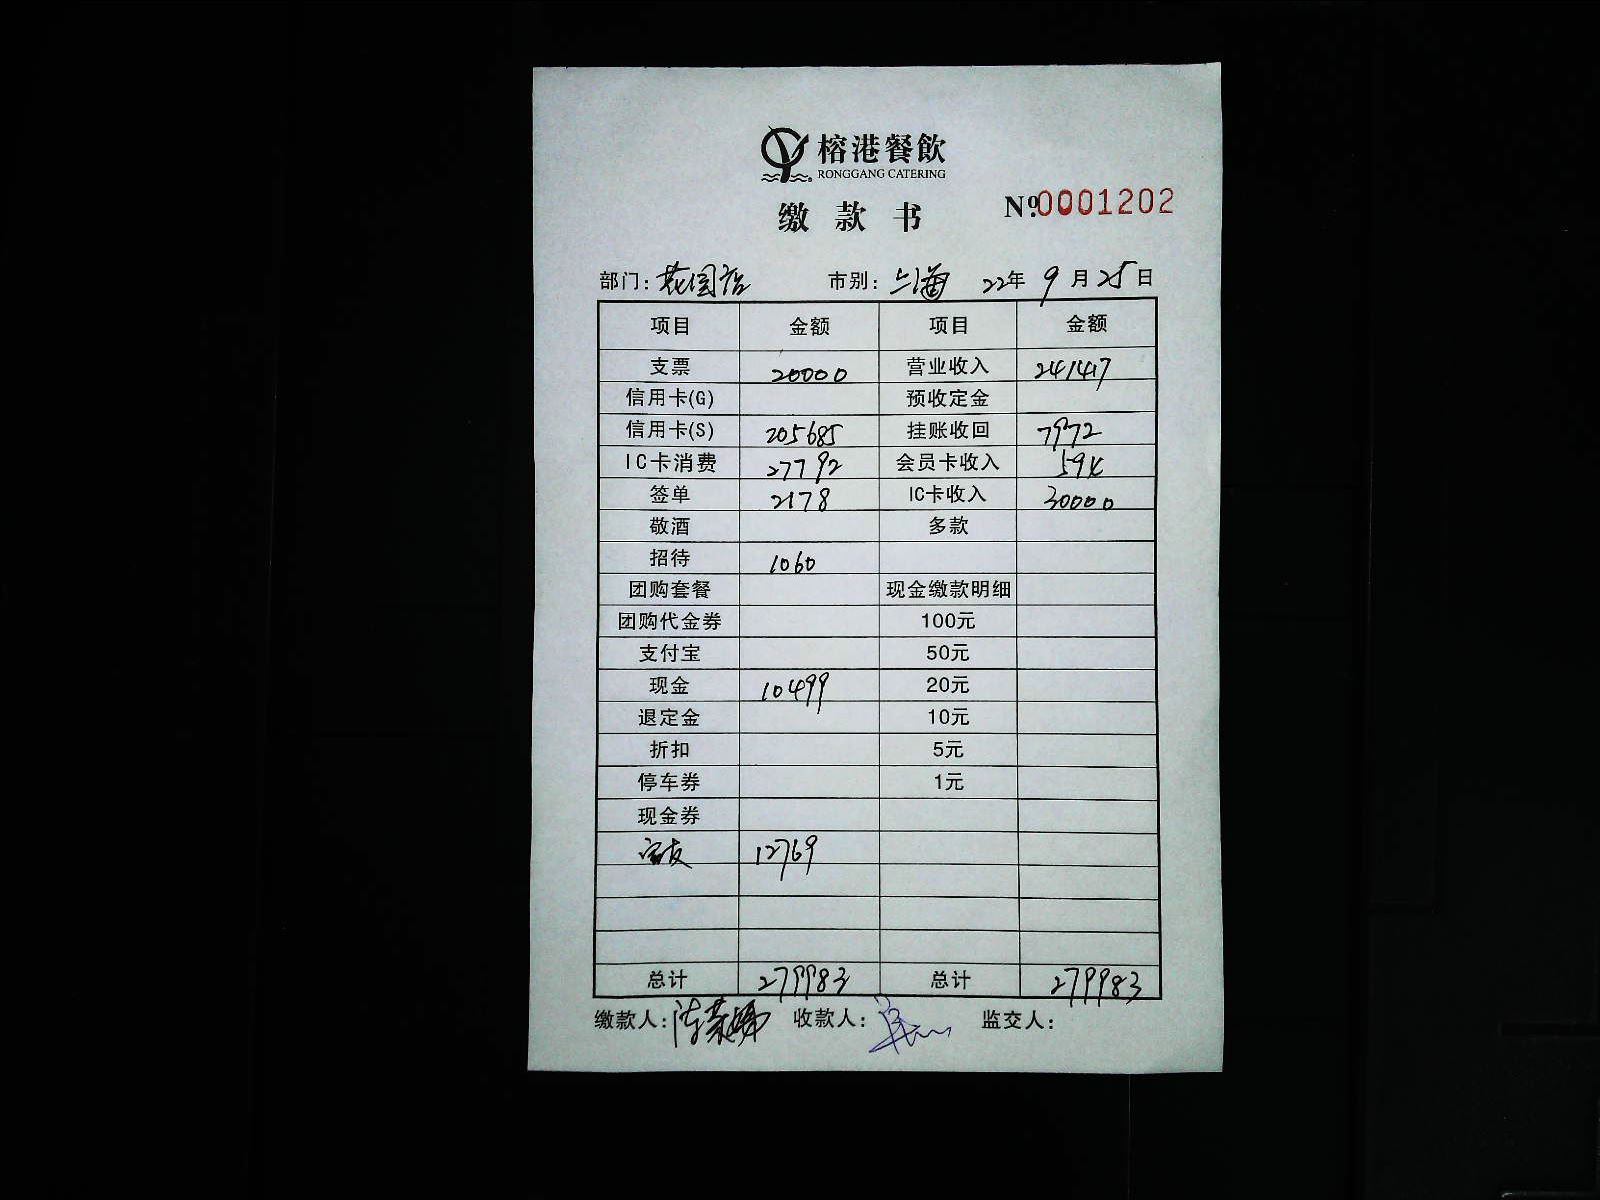 榕港餐飲
RONGGANG CATERING
缴款书 №0001202
部门: 花园店 市别: 上海 22年 9月 25日
项目 金额 项目 金额
支票 20000 营业收入 241417
信用卡(G) 预收定金
信用卡(S) 205685 挂账收回 7972
IC卡消费 27792 会员卡收入 594
签单 2178 IC卡收入 30000
敬酒 多款
招待 1060
团购套餐 现金缴款明细
团购代金券 100元
支付宝 50元
现金 10499 20元
退定金 10元
折扣 5元
停车券 1元
现金券
12769
总计 279983 总计 279983
缴款人: 收款人: 监交人: